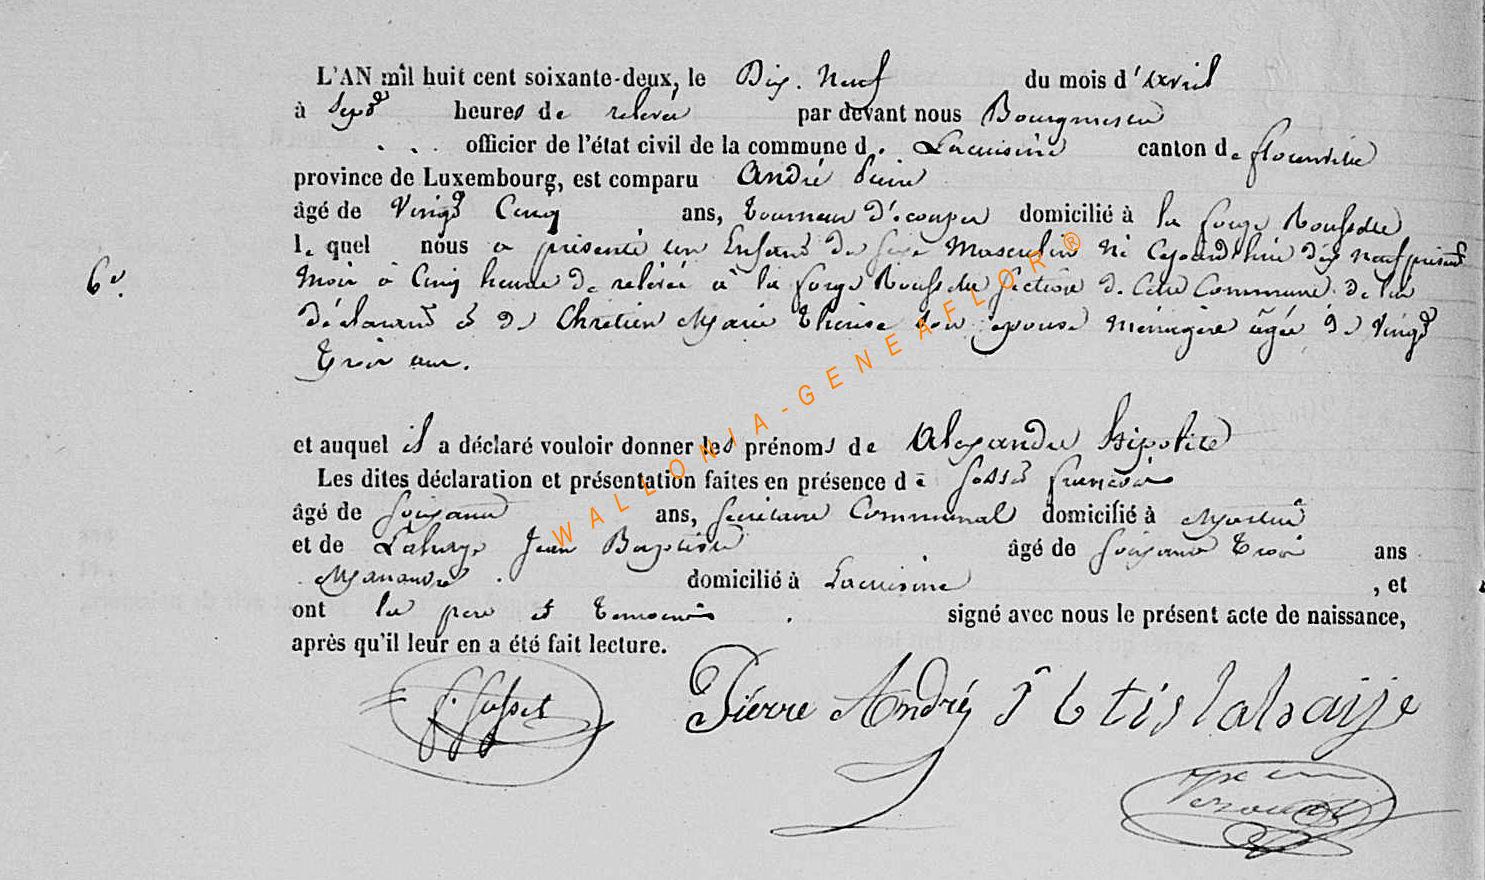 L'AN mil huit cent soixante-deux, le Dix. Neuf du mois d'Avril
à Sept heures de relevée par devant nous Bourgmestre
officier de l'état civil de la commune d. Lacuisine canton de florenville
province de Luxembourg, est comparu André Pierre
âgé de Vingt Cinq ans, tourneur domicilié à la forge Roussel
le quel nous a présenté un Enfant du sexe Masculin né cejourd'hui dix neuf présent
6e.
mois à Cinq heures de relevée à la forge section de cette Commune de lui
déclarant et de Chretien Marie Therese son épouse ménagère âgée de Vingt
trois ans.
et auquel il a déclaré vouloir donner les prénoms de Alexandre Hipolite
Les dites déclaration et présentation faites en présence de françois
âgé de soixante ans, secrétaire Communal domicilié à
et de Lahaye Jean Baptiste âgé de soixante trois ans
Manœuvre domicilié à Lacuisine , et
ont le père et temoins signé avec nous le présent acte de naissance,
après qu'il leur en a été fait lecture.
Pierre André J b tis lahaije
WALLONIA-GENEAFLOR®